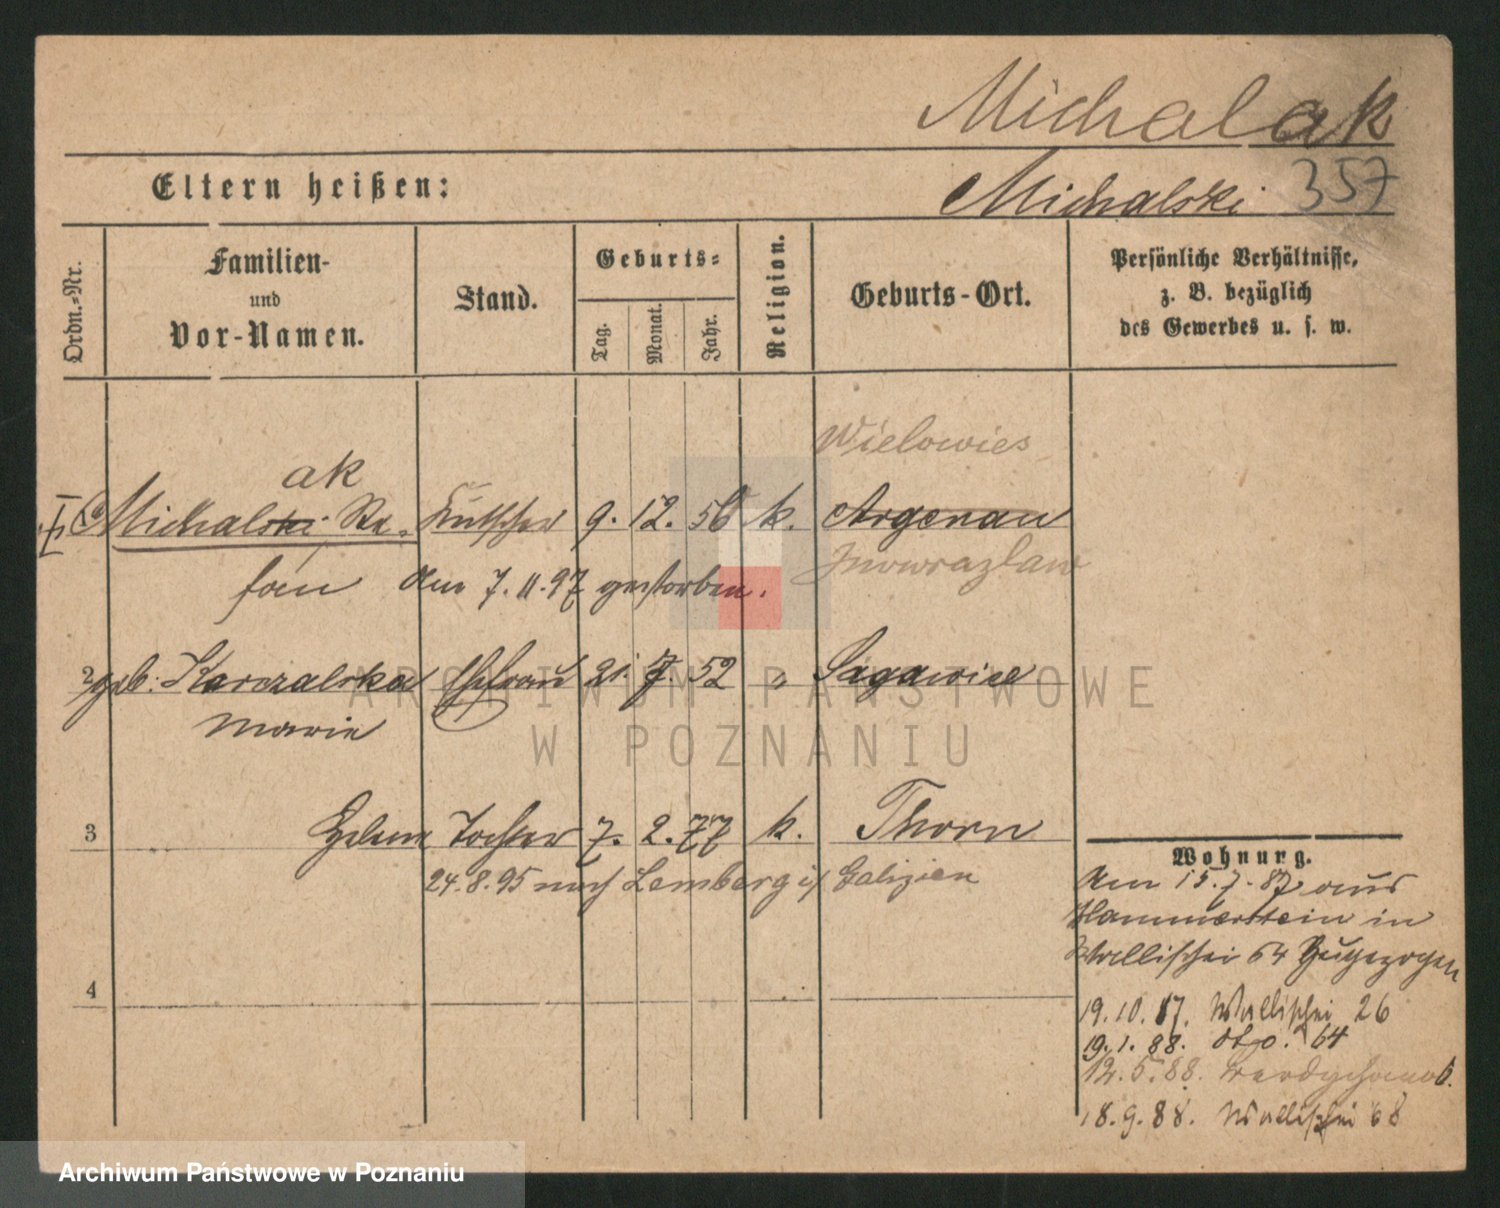 Michalak
Michalski 357
Eltern heißen:
Ordn.=Nr.
Familien-
und
Vor-Namen.
Stand.
Geburts=
Tag.
Monat.
Jahr.
Religion.
Geburts-Ort.
Persönliche Verhältnisse,
z. B. bezüglich
des Gewerbes u. s. w.
Wielowies
ak
Michalski Ste- Kutscher 9. 12. 56 k. Argenau
fan am 7.11.97 gestorben. Inowrazlaw
2 geb: Karczalska Ehefrau 21. 7. 52 " 
Marie
3 Helene Tochter 7. 2. 77 k. Thorn
24.8.95 nach Lemberg i/ Galizien
4
Wohnung.
Am 15.7.87 aus
Hammerstein in
Wallischei 64 zugezogen
19.10.87. Wallischei 26
19.1.88. dto. 64
12.5.88.
18.9.88. Wallischei 68
ARCHIWUM PAŃSTWOWE
W POZNANIU
Archiwum Państwowe w Poznaniu